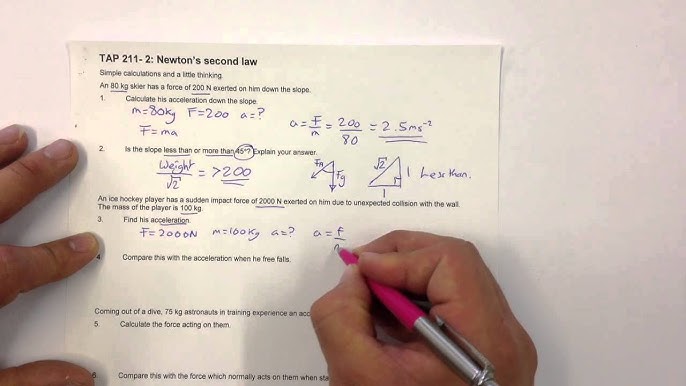 TAP 211- 2: Newton's second law
Simple calculations and a little thinking.
An 80 kg skier has a force of 200 N exerted on him down the slope.
1. Calculate his acceleration down the slope.
m=80kg F=200 a=? a=F/m = 200/80 = 2.5ms⁻²
F=ma
2. Is the slope less than or more than 45°? Explain your answer.
Weight/√2 = >200 Fn Fg √2 1 1 Less than.
An ice hockey player has a sudden impact force of 2000 N exerted on him due to unexpected collision with the wall.
The mass of the player is 100 kg.
3. Find his acceleration.
F=2000N m=100kg a=? a=F
4. Compare this with the acceleration when he free falls.
Coming out of a dive, 75 kg astronauts in training experience an
5. Calculate the force acting on them.
6. Compare this with the force which normally acts on them when